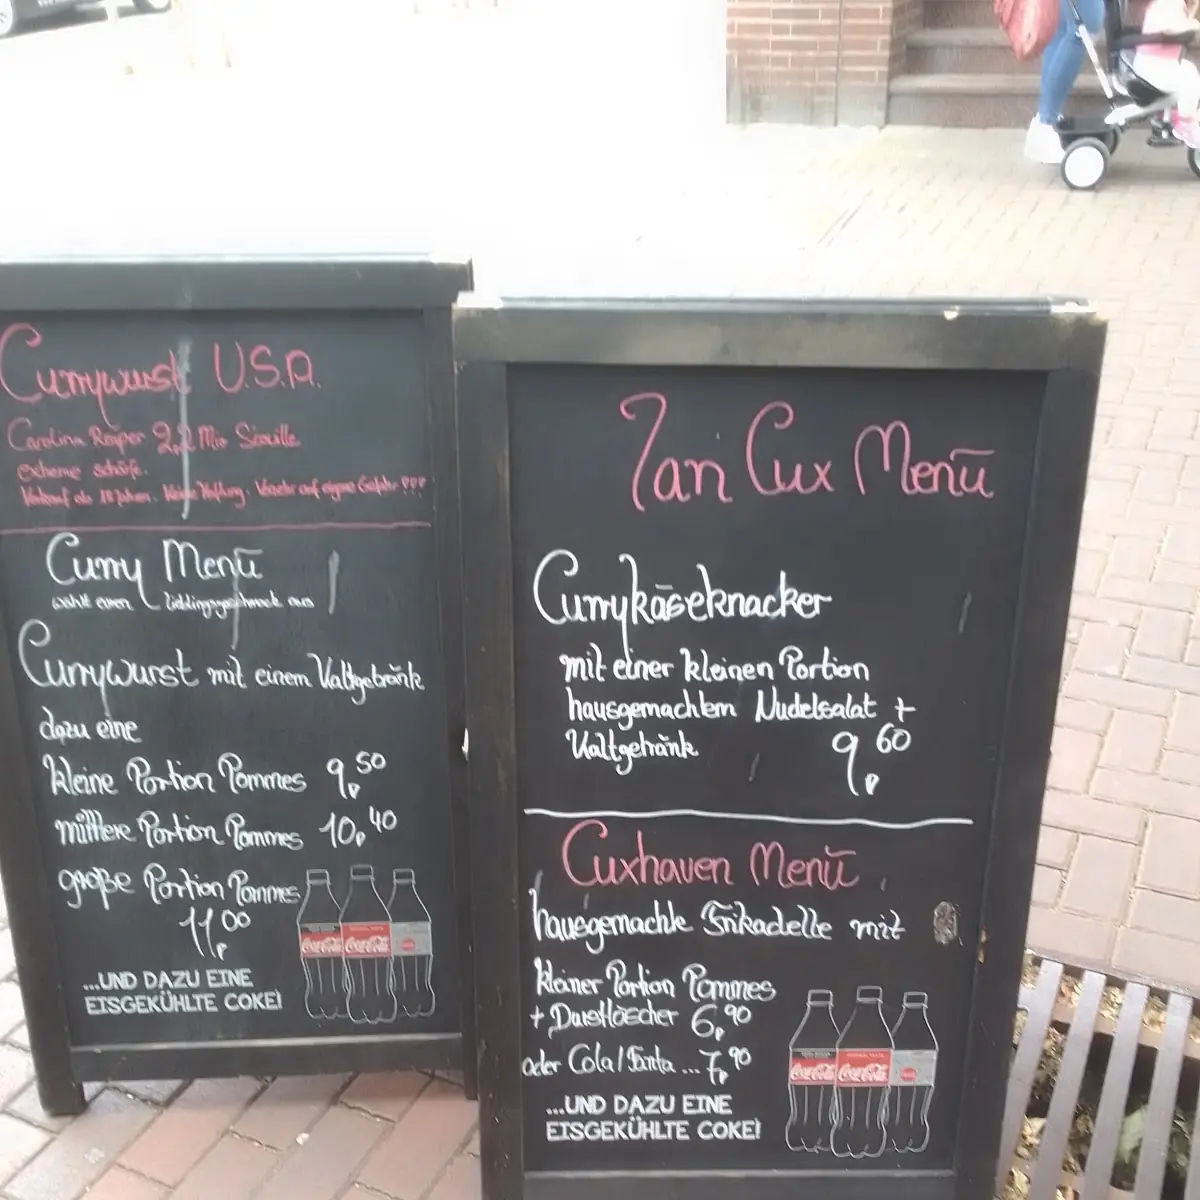 Currywurst U.S.A.
Carolina Reaper 2,2 Mio Scoville
extreme schärfe.
Verkauf ab 18 Jahren. Keine Haftung. Verzehr auf eigene Gefahr!!!
Curry Menü
wählt euren Lieblingsgeschmack aus
Currywurst mit einem Kaltgetränk
dazu eine
kleine Portion Pommes 9,50
mittlere Portion Pommes 10,40
große Portion Pommes
11,00
...UND DAZU EINE
EISGEKÜHLTE COKE!
Coca-Cola Coca-Cola
Cux Menü
Currykäseknacker
mit einer kleinen Portion
hausgemachtem Nudelsalat +
Kaltgetränk 9,60
Cuxhaven Menü
hausgemachte Frikadelle mit
kleiner Portion Pommes
+ Durstlöscher 6,90
oder Cola/Fanta ... 7,90
...UND DAZU EINE
EISGEKÜHLTE COKE!
Coca-Cola Coca-Cola